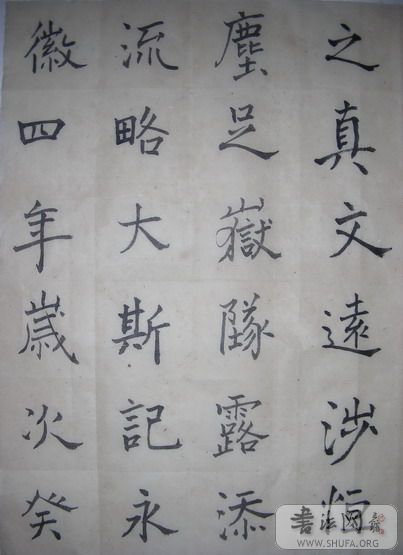 之真文遠涉恒
塵足嶽墜露添
流略大斯記永
徽四年歲次癸
書法网
WWW.SHUFA.ORG